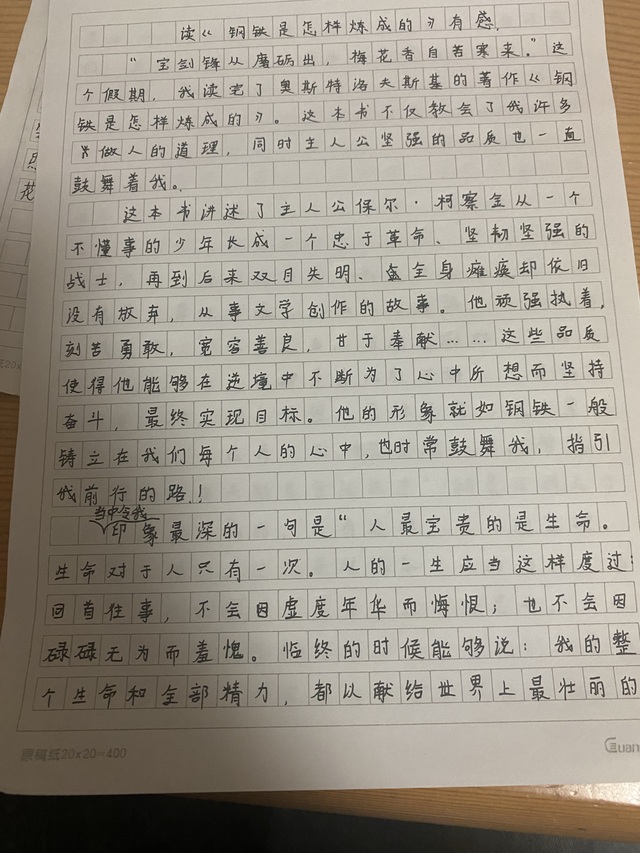 读《钢铁是怎样炼成的》有感.
“宝剑锋从磨砺出，梅花香自苦寒来。”这
个假期，我读完了奥斯特洛夫斯基的著作《钢
铁是怎样炼成的》。这本书不仅教会了我许多
做人的道理，同时主人公坚强的品质也一直
鼓舞着我。
这本书讲述了主人公保尔·柯察金从一个
不懂事的少年长成一个忠于革命、坚韧坚强的
战士，再到后来双目失明、全身瘫痪却依旧
没有放弃，从事文学创作的故事。他顽强执着，
刻苦勇敢，宽容善良，甘于奉献……这些品质
使得他能够在逆境中不断为了心中所想而坚持
奋斗，最终实现目标。他的形象就如钢铁一般
铸立在我们每个人的心中，也时常鼓舞我，指引
我前行的路！
当中令我
印象最深的一句是“人最宝贵的是生命。
生命对于人只有一次。人的一生应当这样度过：
回首往事，不会因虚度年华而悔恨；也不会因
碌碌无为而羞愧。临终的时候能够说：我的整
个生命和全部精力，都以献给世界上最壮丽的
原稿纸20x20=400
Guan